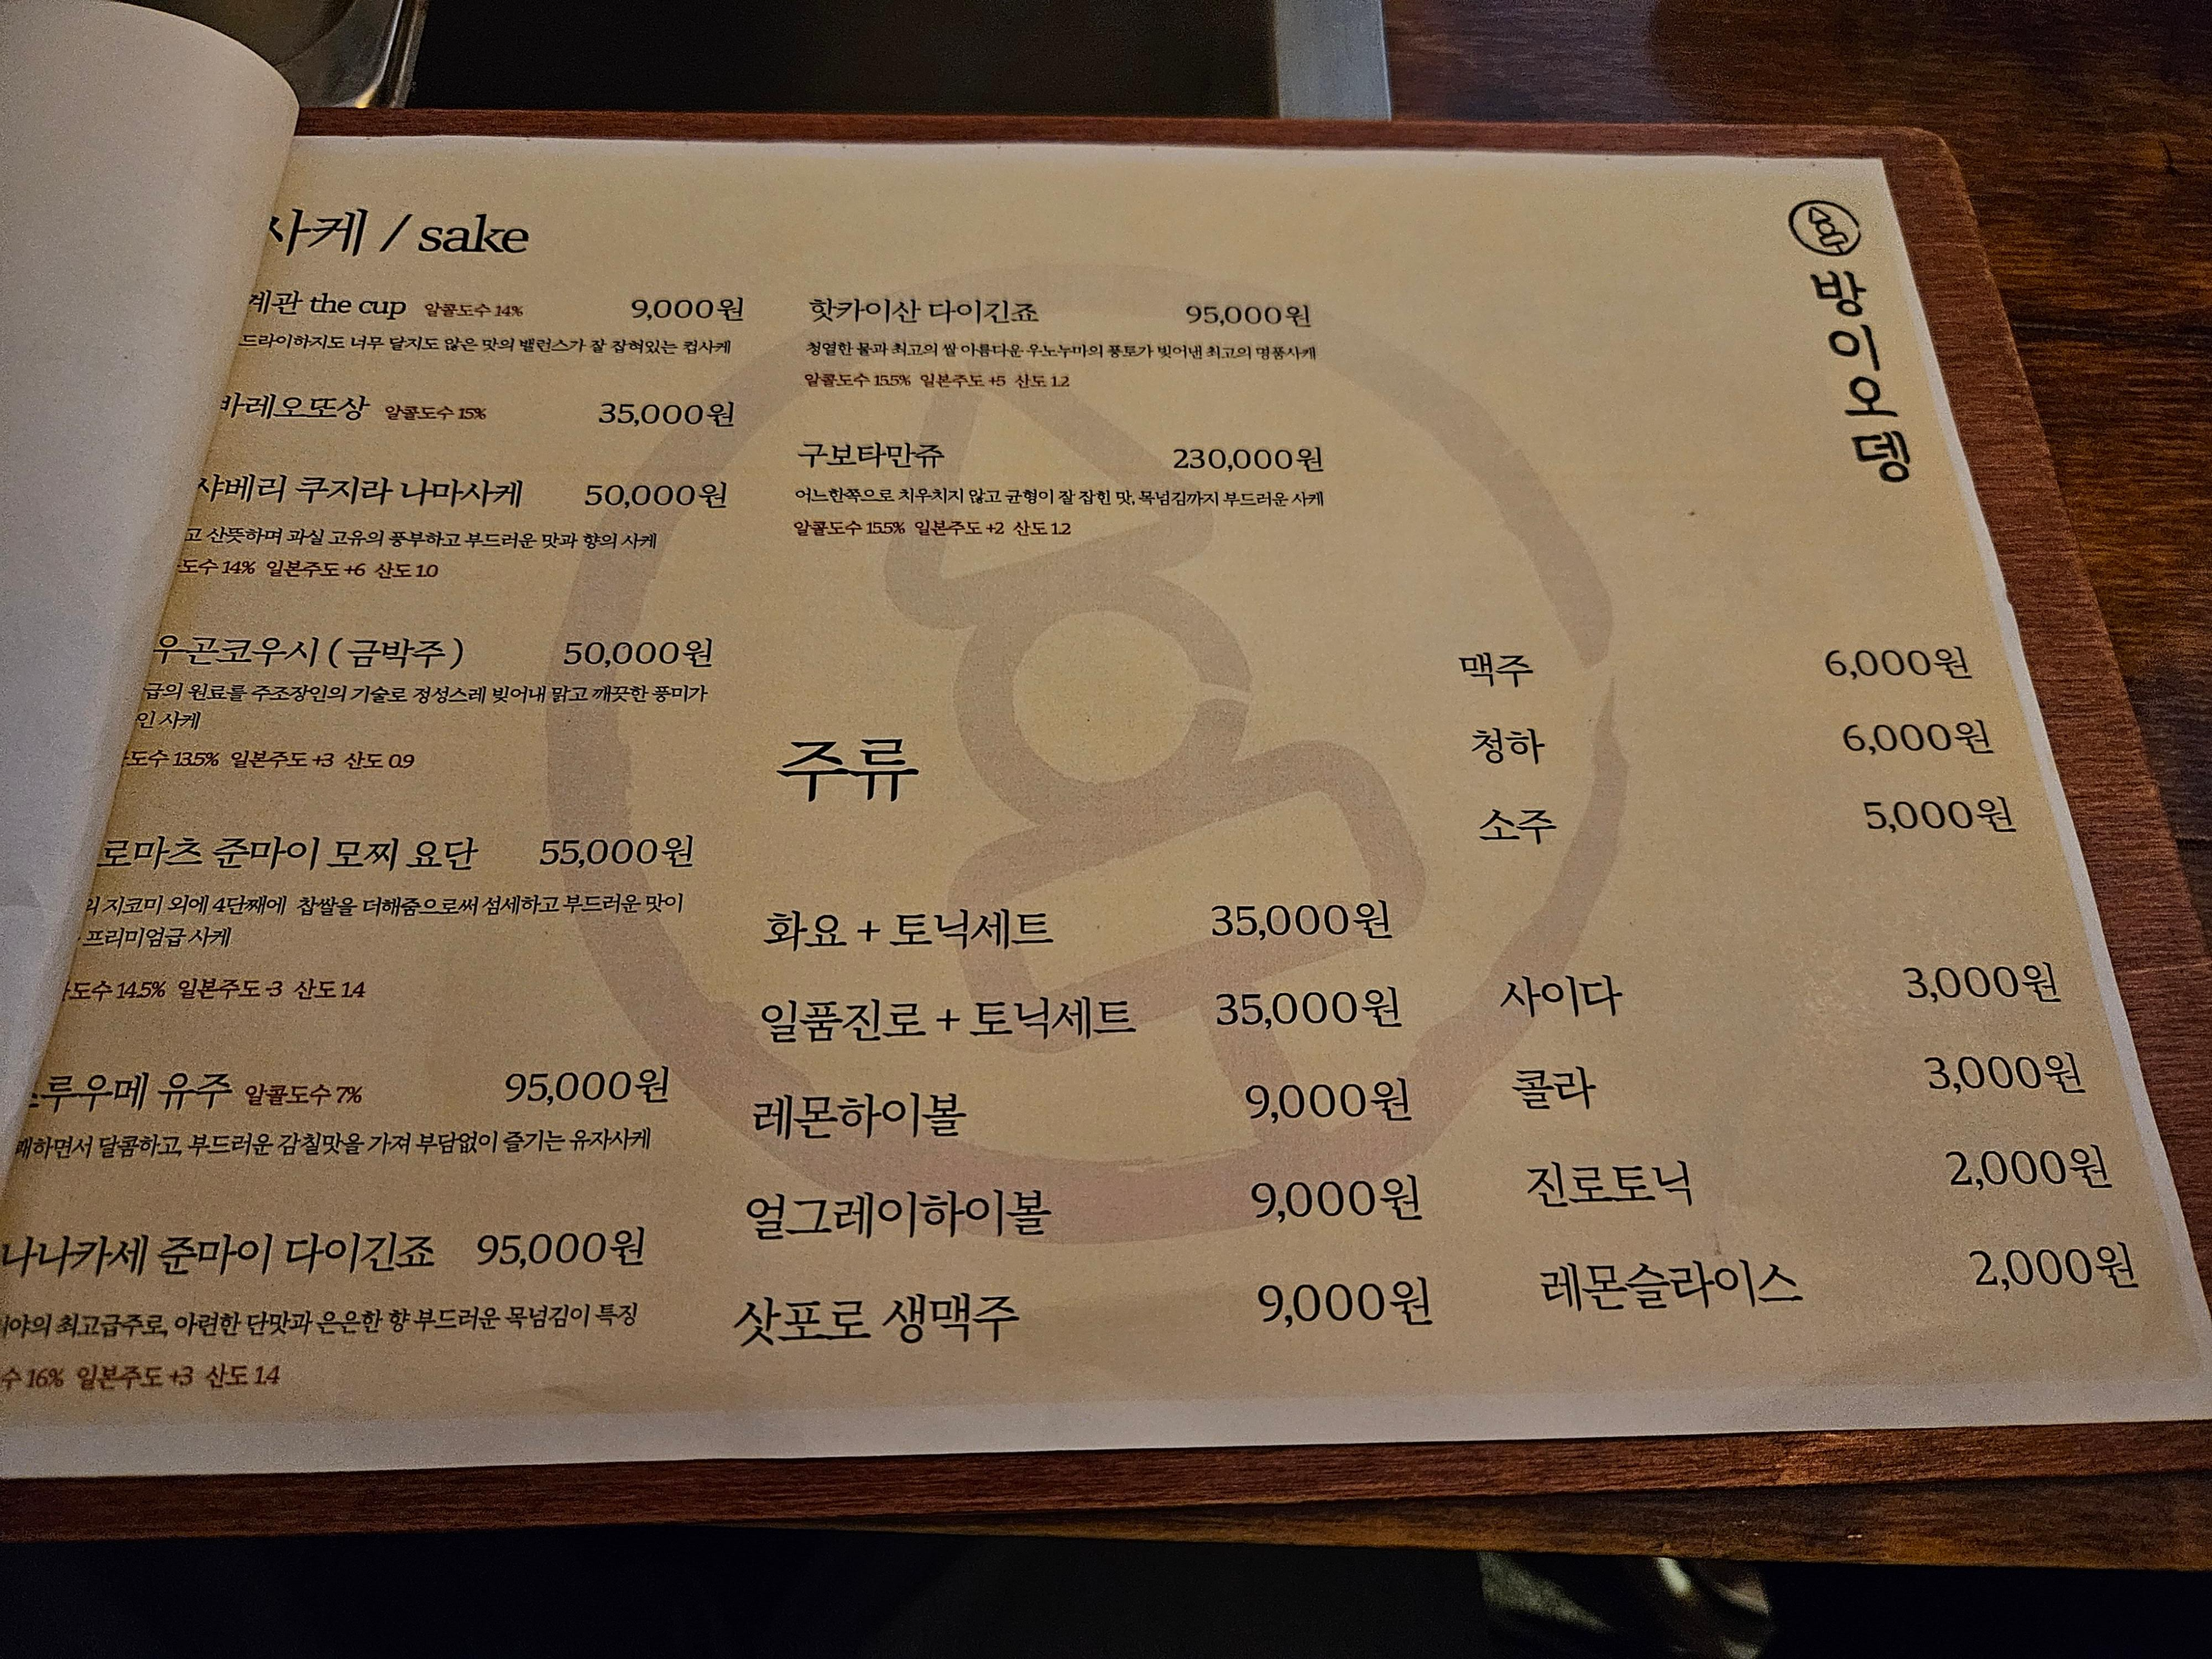 사케 / sake
계관 the cup 알콜도수 14% 9,000원
드라이하지도 너무 달지도 않은 맛의 밸런스가 잘 잡혀있는 컵사케
바레오또상 알콜도수 15% 35,000원
샤베리 쿠지라 나마사케 50,000원
고 산뜻하며 과실 고유의 풍부하고 부드러운 맛과 향의 사케
도수 14% 일본주도 +6 산도 1.0
우곤코우시 ( 금박주 ) 50,000원
급의 원료를 주조장인의 기술로 정성스레 빚어내 맑고 깨끗한 풍미가
인 사케
도수 13.5% 일본주도 +3 산도 0.9
로마츠 준마이 모찌 요단 55,000원
의 지코미 외에 4단째에 찹쌀을 더해줌으로써 섬세하고 부드러운 맛이
프리미엄급 사케
도수 14.5% 일본주도 -3 산도 1.4
루우메 유주 알콜도수 7% 95,000원
쾌하면서 달콤하고, 부드러운 감칠맛을 가져 부담없이 즐기는 유자사케
나나카세 준마이 다이긴죠 95,000원
야의 최고급주로, 아련한 단맛과 은은한 향 부드러운 목넘김이 특징
수 16% 일본주도 +3 산도 1.4
핫카이산 다이긴죠 95,000원
청열한 물과 최고의 쌀 아름다운 우노누마의 풍토가 빚어낸 최고의 명품사케
알콜도수 15.5% 일본주도 +5 산도 1.2
구보타만쥬 230,000원
어느한쪽으로 치우치지 않고 균형이 잘 잡힌 맛, 목넘김까지 부드러운 사케
알콜도수 15.5% 일본주도 +2 산도 1.2
주류
화요 + 토닉세트 35,000원
일품진로 + 토닉세트 35,000원
레몬하이볼 9,000원
얼그레이하이볼 9,000원
삿포로 생맥주 9,000원
맥주 6,000원
청하 6,000원
소주 5,000원
사이다 3,000원
콜라 3,000원
진로토닉 2,000원
레몬슬라이스 2,000원
방이오뎅